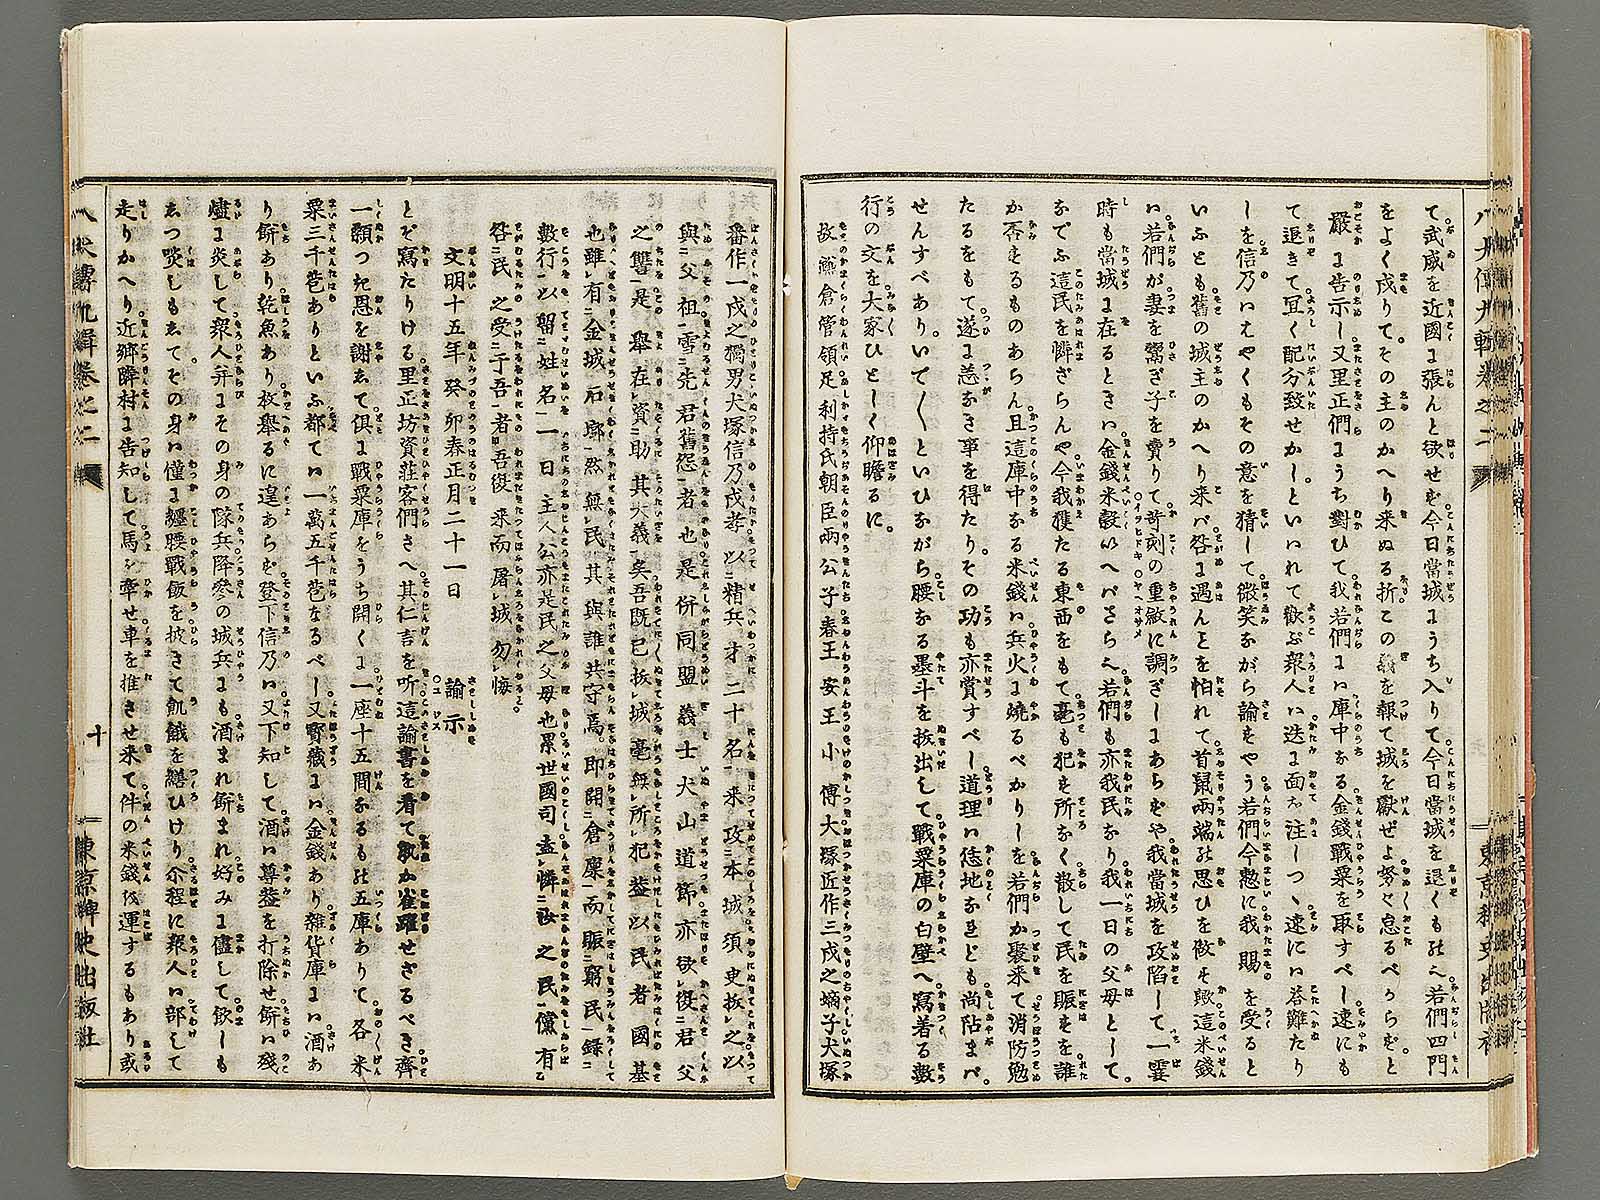 八犬傳九輯卷之二
て武威を近國に張んと欲せず今日當城にうち入りて今日當城を退くものへ若們四門
をよく戍りてその主のかへり来ぬる折この義を報て城を獻ぜよ努々怠るべからずと
嚴に告示し又里正們にうち對ひて我若們に庫中なる金錢戰粟を取すべし速にも
て退きて冝く配分致せかしといはれて歡ぶ衆人は迭に面を注しつゝ遽には荅難たり
しを信乃ははやくもその意を猜して微笑ながら諭すやう若們今憗に我賜を受ると
いふとも舊の城主のかへり来バ咎に遇んとを怕れて首鼠兩端の思ひを做す歟這米錢
は若們が妻を鬻ぎ子を賣りて苛刻の重斂に調ぎしにあらずや我當城を攻陷して一霎
時も當城に在るときは金錢米穀いへバさら也若們も亦我民なり我一日の父母として
なでふ這民を憐ざらんや今我獲たる東西をもて毫も犯す所なく散して民を賑すを誰
か否するものあらん且這庫中なる米錢は兵火に燒るべかりしを若們か聚来て消防勉
たるをもて遂に恙なき事を得たりその功も亦賞すべし道理は恁地なれども尚阽まバ
せんすべありいで〳〵といひながら腰なる墨斗を抜出して戰粟庫の白壁へ寫着る數
行の文を大家ひとしく仰瞻るに
故鎌倉管領足利持氏朝臣兩公子春王安王小傅大塚匠作三戍之嫡子犬塚
番作一戍之獨男犬塚信乃戍孝以精兵才二十名来攻本城須臾抜之以
與父祖雪先君舊怨者也是併同盟義士犬山道節亦欲復君父
之讐是舉在資助其大義矣吾既已抜城毫無所犯葢以民者國基
也雖有金城石墎然無民其與誰共守焉即開倉廩而賑窮民録
數行以留姓名一日主人公亦是民之父母也累世國司盍憐汝之民儻有
咎民之受于吾者吾復来而屠城勿悔
文明十五年癸卯春正月二十一日　諭示
とぞ寫たりける里正坊資莊客們さへ其仁言を听這諭書を看て孰か雀躍せざるべき齊
一額つき恩を謝して俱に戰粟庫をうち開くに一座十五間なるもの五庫ありて各米
粟三千苞ありといふ都ては一萬五千苞なるべし又寳藏には金錢あり雜貨庫には酒あ
り餅あり乾魚あり枚擧るに遑あらず登下信乃は又下知して酒は尊葢を打除せ餅は殘
燼に炙して衆人并にその身の隊兵降參の城兵にも酒まれ餅まれ好みに儘して飲しも
し啖しもしてその身は僅に纒腰戰飯を披きて飢餓を繕ひけり尒程に衆人は部して
走りかへり近鄉隣村に告知して馬を牽せ車を推させ来て件の米錢を運するもあり或
八犬傳九輯卷之二
十
東京稗史出版社